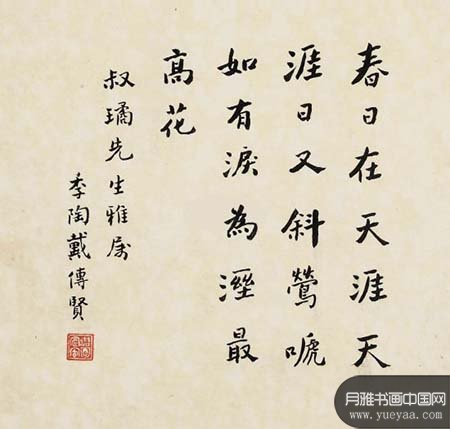 春日在天涯天
涯日又斜鶯嗁
如有淚為溼最
高花
叔璚先生雅属
季陶戴傳賢
月雅书画中国网
www.yueyaa.com